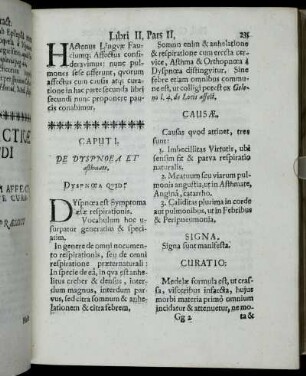 Libri II, Pars II,
HActenus Linguæ Fau-
ciumq; Affectus consi-
deravimus: nunc pul-
mones sese offerunt, quorum
affectus cum causis atq; cura-
tione in hac parte secunda libri
secundi nunc proponere pau-
cis conabimur.
CAPUT I.
DE DYSPNOEA ET
asthmate.
DYSPNOEA QUID?
DYspnœa est Symptoma
læsæ respirationis.
Vocabulum hoc u-
surpatur generatim & speci-
atim.
In genere de omni nocumento
respirationis, seu de omni
respiratione præternaturali:
In specie de eâ, in qua est anhe-
litus creber & densus, inter-
dum magnus, interdum par-
vus, sed citra somnum & anhe-
lationem & citra febrem,
Somno enim & anhelatione
& respiratione cum erecta cer-
vice, Asthma & Orthopnœa à
Dyspnœa distinguitur. Sine
febre etiam omnibus commu-
ne est, ut colligi potest ex Gale-
no l. 4. de Locis affect.
CAUSÆ.
Causæ quod attinet, tres
sunt:
1. Imbecillitas Virtutis, ubi
sensim fit & parva respiratio
naturalis.
2. Meatuum seu viarum pul-
monis angustia, ut in Asthmate,
Anginâ, catarrho.
3. Caliditas plurima in corde
aut pulmonibus, ut in Febribus
& Peripneumonia.
SIGNA.
Signa sunt manifesta.
CURATIO:
Medelæ formula est, ut cras-
sa, visceribus infarcta, hujus
morbi materia primò omnium
incidatur & attenuetur, ne mo-
Gg 2
ta &